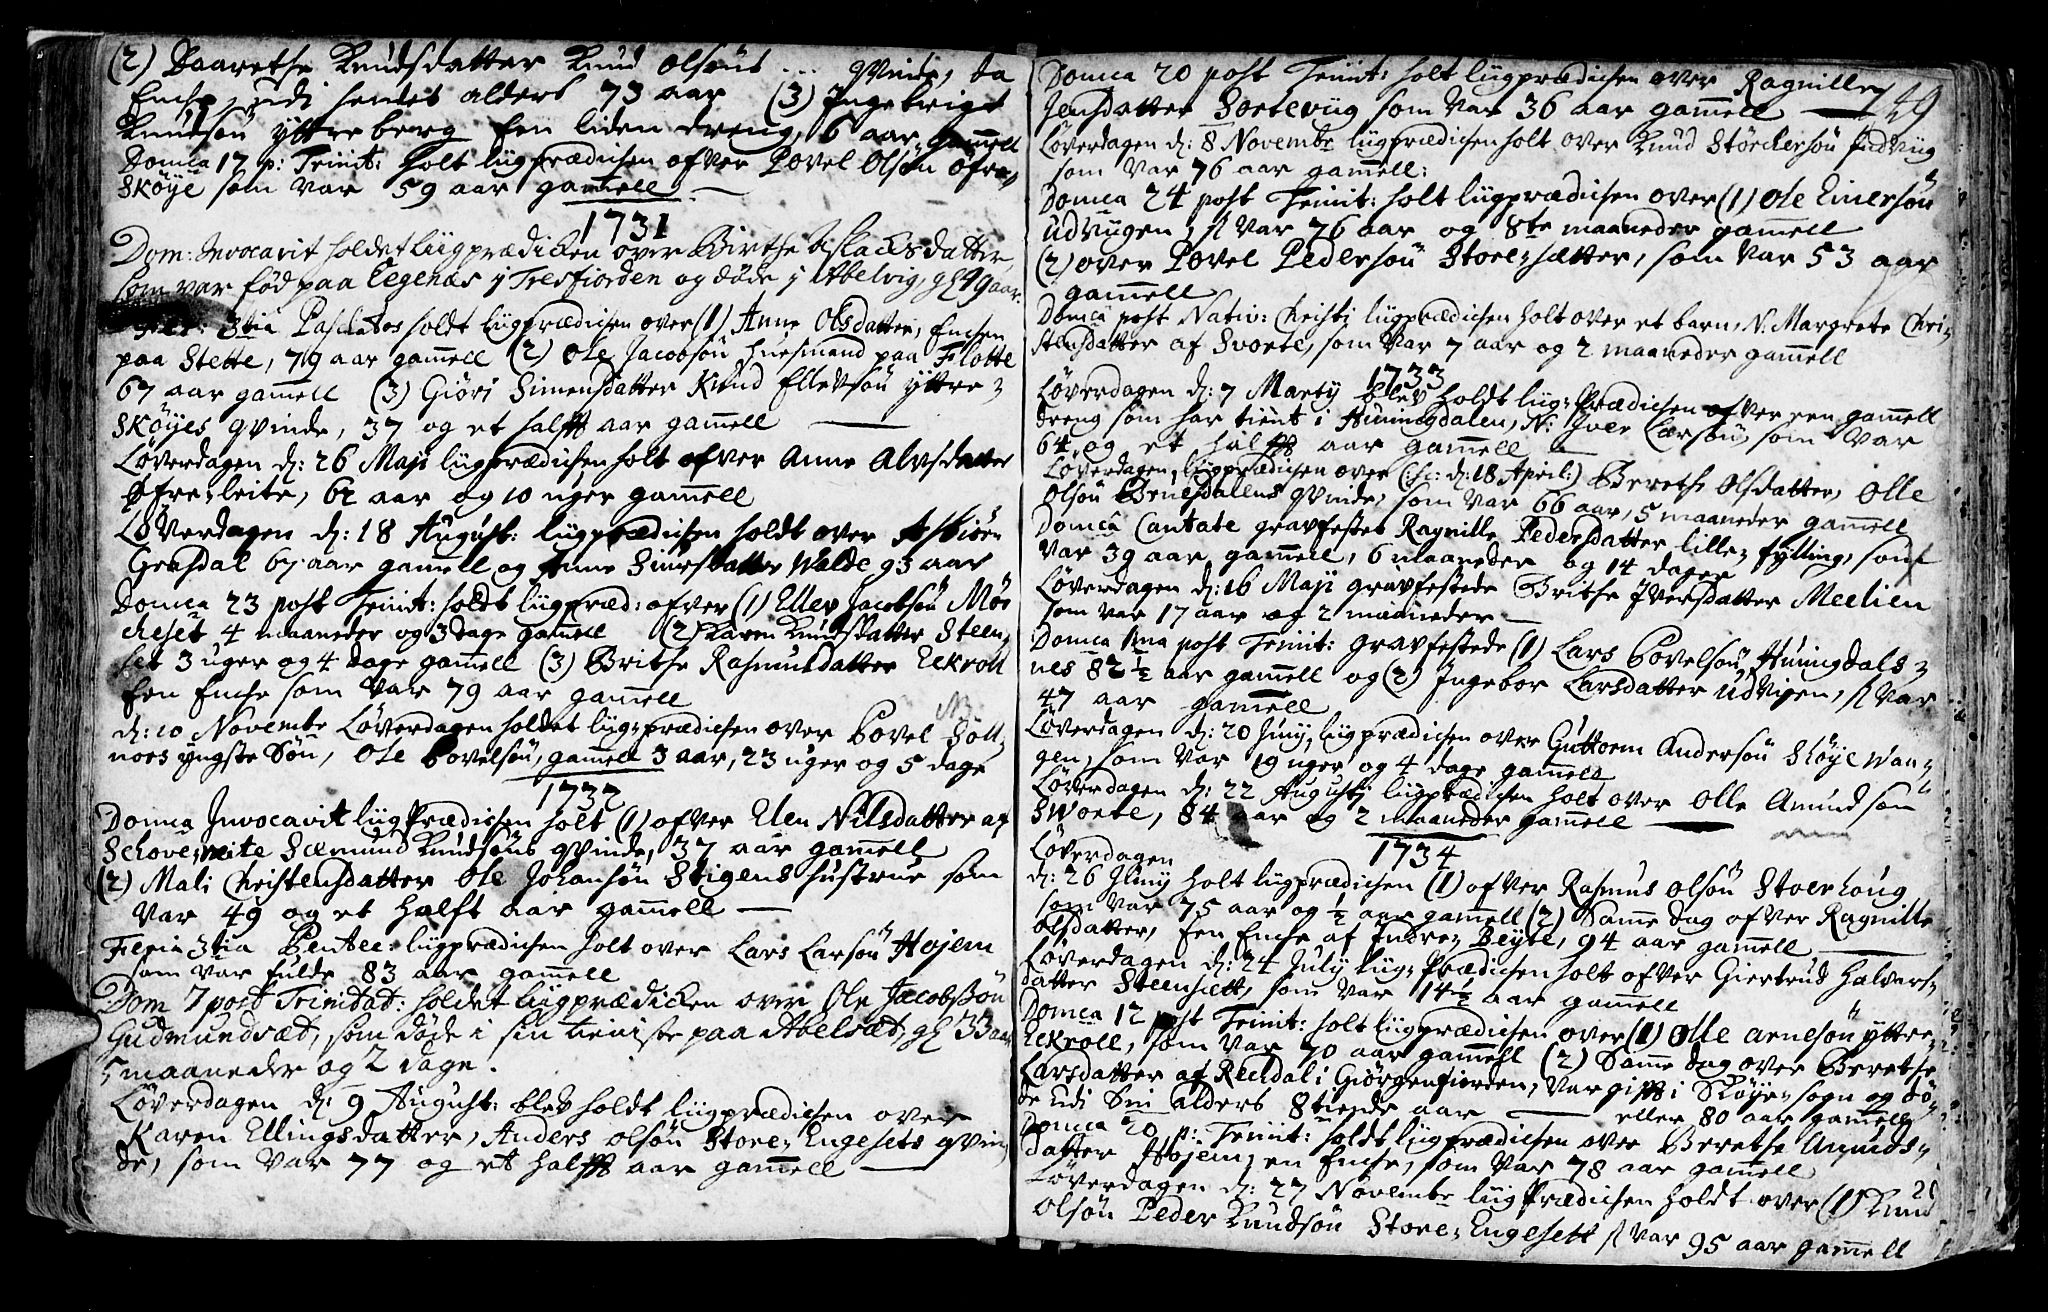 (2) Daarethe Knudsdatter Knud Olsøns ... qvinde, da
Enche, udi hendes alders 73 aar (3) Ingebrigt
Knudsøn Ytterberg Een liden dreng, 6 aar gamell
Domca 17 p: Trinit: holt liigprædichen ofver Povel Olsøn Ofre-
Skøye som var 59 aar gamell
1731
Dom: Invocavit holdet Liigprædicken over Birthe Aslacksdatter,
som var fød paa Eegenæs i Tresfiorden og døde i Abelvig, gl 49 aar.
3tia Paschatos holdt liigprædichen over (1) Anne Olsdatter, Enchen
paa Stette, 79 aar gamell (2) Ole Jacobsøn Huesmand paa Flotte
67 aar gamell (3) Giøri Simensdatter Knud Ellevsøn Yttre-
Skøyes qvinde, 37 og et halft aar gamell
Løverdagen d: 26 Maji liigprædichen holt ofver Anne Alvsdatter
Øfre-leite, 62 aar og 10 uger gamell
Løverdagen d: 18 August: liigprædichen holdt over Asbiørn
Grasdal 67 aar gamell og Anne Siursdatter Walde 93 aar
Domca 23 post Trinit: holdt liigpræd: ofver (1) Ellev Jacobsøn Møs
cheset 4 maaneder og 3 dage gamell (2) Karen Knudsdatter Steen-
set 3 uger og 4 dage gamell (3) Brithe Rasmusdatter Eckroll
Een Enche som var 79 aar gamell
d: 10 Novembr Løverdagen holdet liig-prædichen over Povel Søll-
nors yngste Søn, Ole Povelsøn, gamell 3 aar, 23 uger og 5 dage
1732
Domca Invocavit liigPrædichen holt (1) ofver Elen Nilsdatter af
Schoveneite Sæmund Knudsøns qvinde, 37 aar gamell
(2) Mali Christensdatter Ole Johansøn Stigens hustrue som
var 49 og et halft aar gamell
Feria 3tia Pentec: liigprædichen holt over Lars Larsøn Højem
som var fulde 83 aar gamell
Dom 7 post Trinitat: holdet Liigprædicken over Ole Jacobsøn
Gudmundsæt, som døde i sin tieniste paa Abelsæt, gl 33 aar
5 maaneder og 2 dage.
Løverdagen d: 9 August: blev holdt liigprædichen over
Karen Ellingsdatter, Anders Olsøn Store-Engesets qvin-
de, som var 77 og et halft aar gamell
49
Domca 20 post Trinit: holt liigprædichen over Ragnille
Jensdatter Sortevug som var 36 aar gamell
Løverdagen d: 8 Novembr liigprædichen holt over Knud Størchersøn Indviig
som var 76 aar gamell:
Domca 24 post Trinit: holt liigprædichen over (1) Ole Einersøn
Udviigen, s var 76 aar og 8te maaneder gamell
(2) over Povel Pedersøn Store-sætter, som var 53 aar
gamell
Domca post Nativ: Christi liigprædichen holt over et barn, N. Margrete Chri-
stensdatter af Svorte, som var 7 aar og 2 maaneder gamell
1733
Løverdagen d: 7 Martij blev holdt liig-Prædichen ofver een gamell
dreng som har tient i Huningdalen, N: Iver Larsøn, som var
64 og et halft aar gamell
Løverdagen liigprædichen over (:sc: d: 18 April:) Berethe Olsdatter, Olle
Olsøn Bruesdalens qvinde, som var 66 aar, 5 maaneder gamell
Domca Cantate gravfestet Ragnille Pedersdatter lille-fylling, som
var 39 aar gamell, 6 maaneder og 14 dager
Løverdagen d: 16 Maji gravfestede Brithe Iversdatter Meelien
som var 17 aar og 2 maaneder
Domca 1ma post Trinit: gravfestede (1) Lars Povelsøn Huningdals-
nes 82 1/2 aar gamell og (2) Ingebor Larsdatter Udvigen, s var
47 aar gamell
Løverdagen d: 20 Juny, liigprædichen over Guttorm Andersøn Skøye Wan-
gen, som var 19 uger og 4 dage gamell
Løverdagen d: 22 Augustj liigprædichen holt over Olle Amundsøn
Sworte, 84 aar og 2 maaneder gamell
1734
Løverdagen
d: 26 Juny holt liigprædichen (1) ofver Rasmus Olsøn Stoerhoug
som var 75 aar og 1/2 aar gamell (2) Samme dag ofver Ragnille
Olsdatter, Een Enche af Indre-Beyte, 94 aar gamell
Løverdagen d: 24 July liig-Prædichen holt ofver Giertrud Halvors-
datter Steensett, som var 14 1/2 aar gamell
Domca 12 post Trinit: holt liigprædichen over (1) Olle Arnesøn Yttre-
Eckroll, som var 70 aar gamell (2) Samme dag over Berethe
Larsdatter af Remdal i Giørgenfiorden, var gift i Skøye-sogn og dø-
de udi Sin alders 8tiende aar eller 80 aar gamell
Domca 20 p: Trinit: holdt liigprædichen over Berethe Amunds-
datter Højem, en Enche, som var 78 aar gamell
Løverdagen d: 27 Novembr liigPrædichen holdt over (1) Knud
Olsøn Peder Knudsøn Store-Engesett s var 95 aar gamell